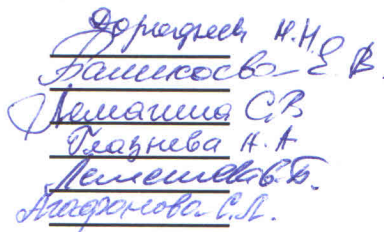 Дораднев Н.Н.
Башкосва Е.В.
Лемагина С.В
Глазнева Н.А
В.Б.
Агафонова С.Л.